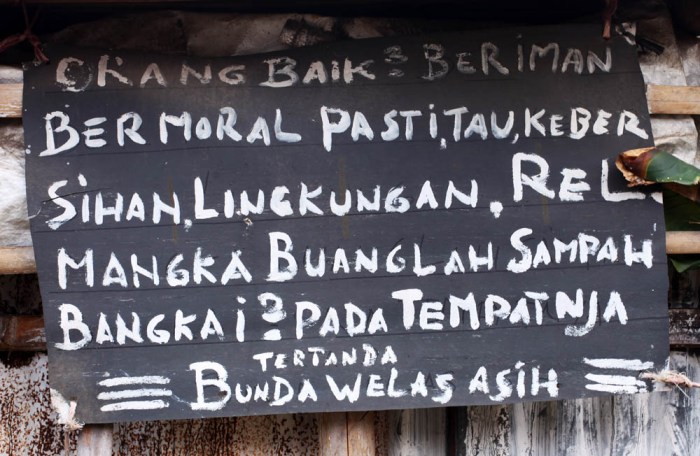 ORANG BAIK² BERIMAN
BERMORAL PASTI,TAU,KEBER
SIHAN,LINGKUNGAN, REL.
MANGKA BUANGLAH SAMPAH
BANGKAI² PADA TEMPATNJA
TERTANDA
BUNDA WELAS ASIH